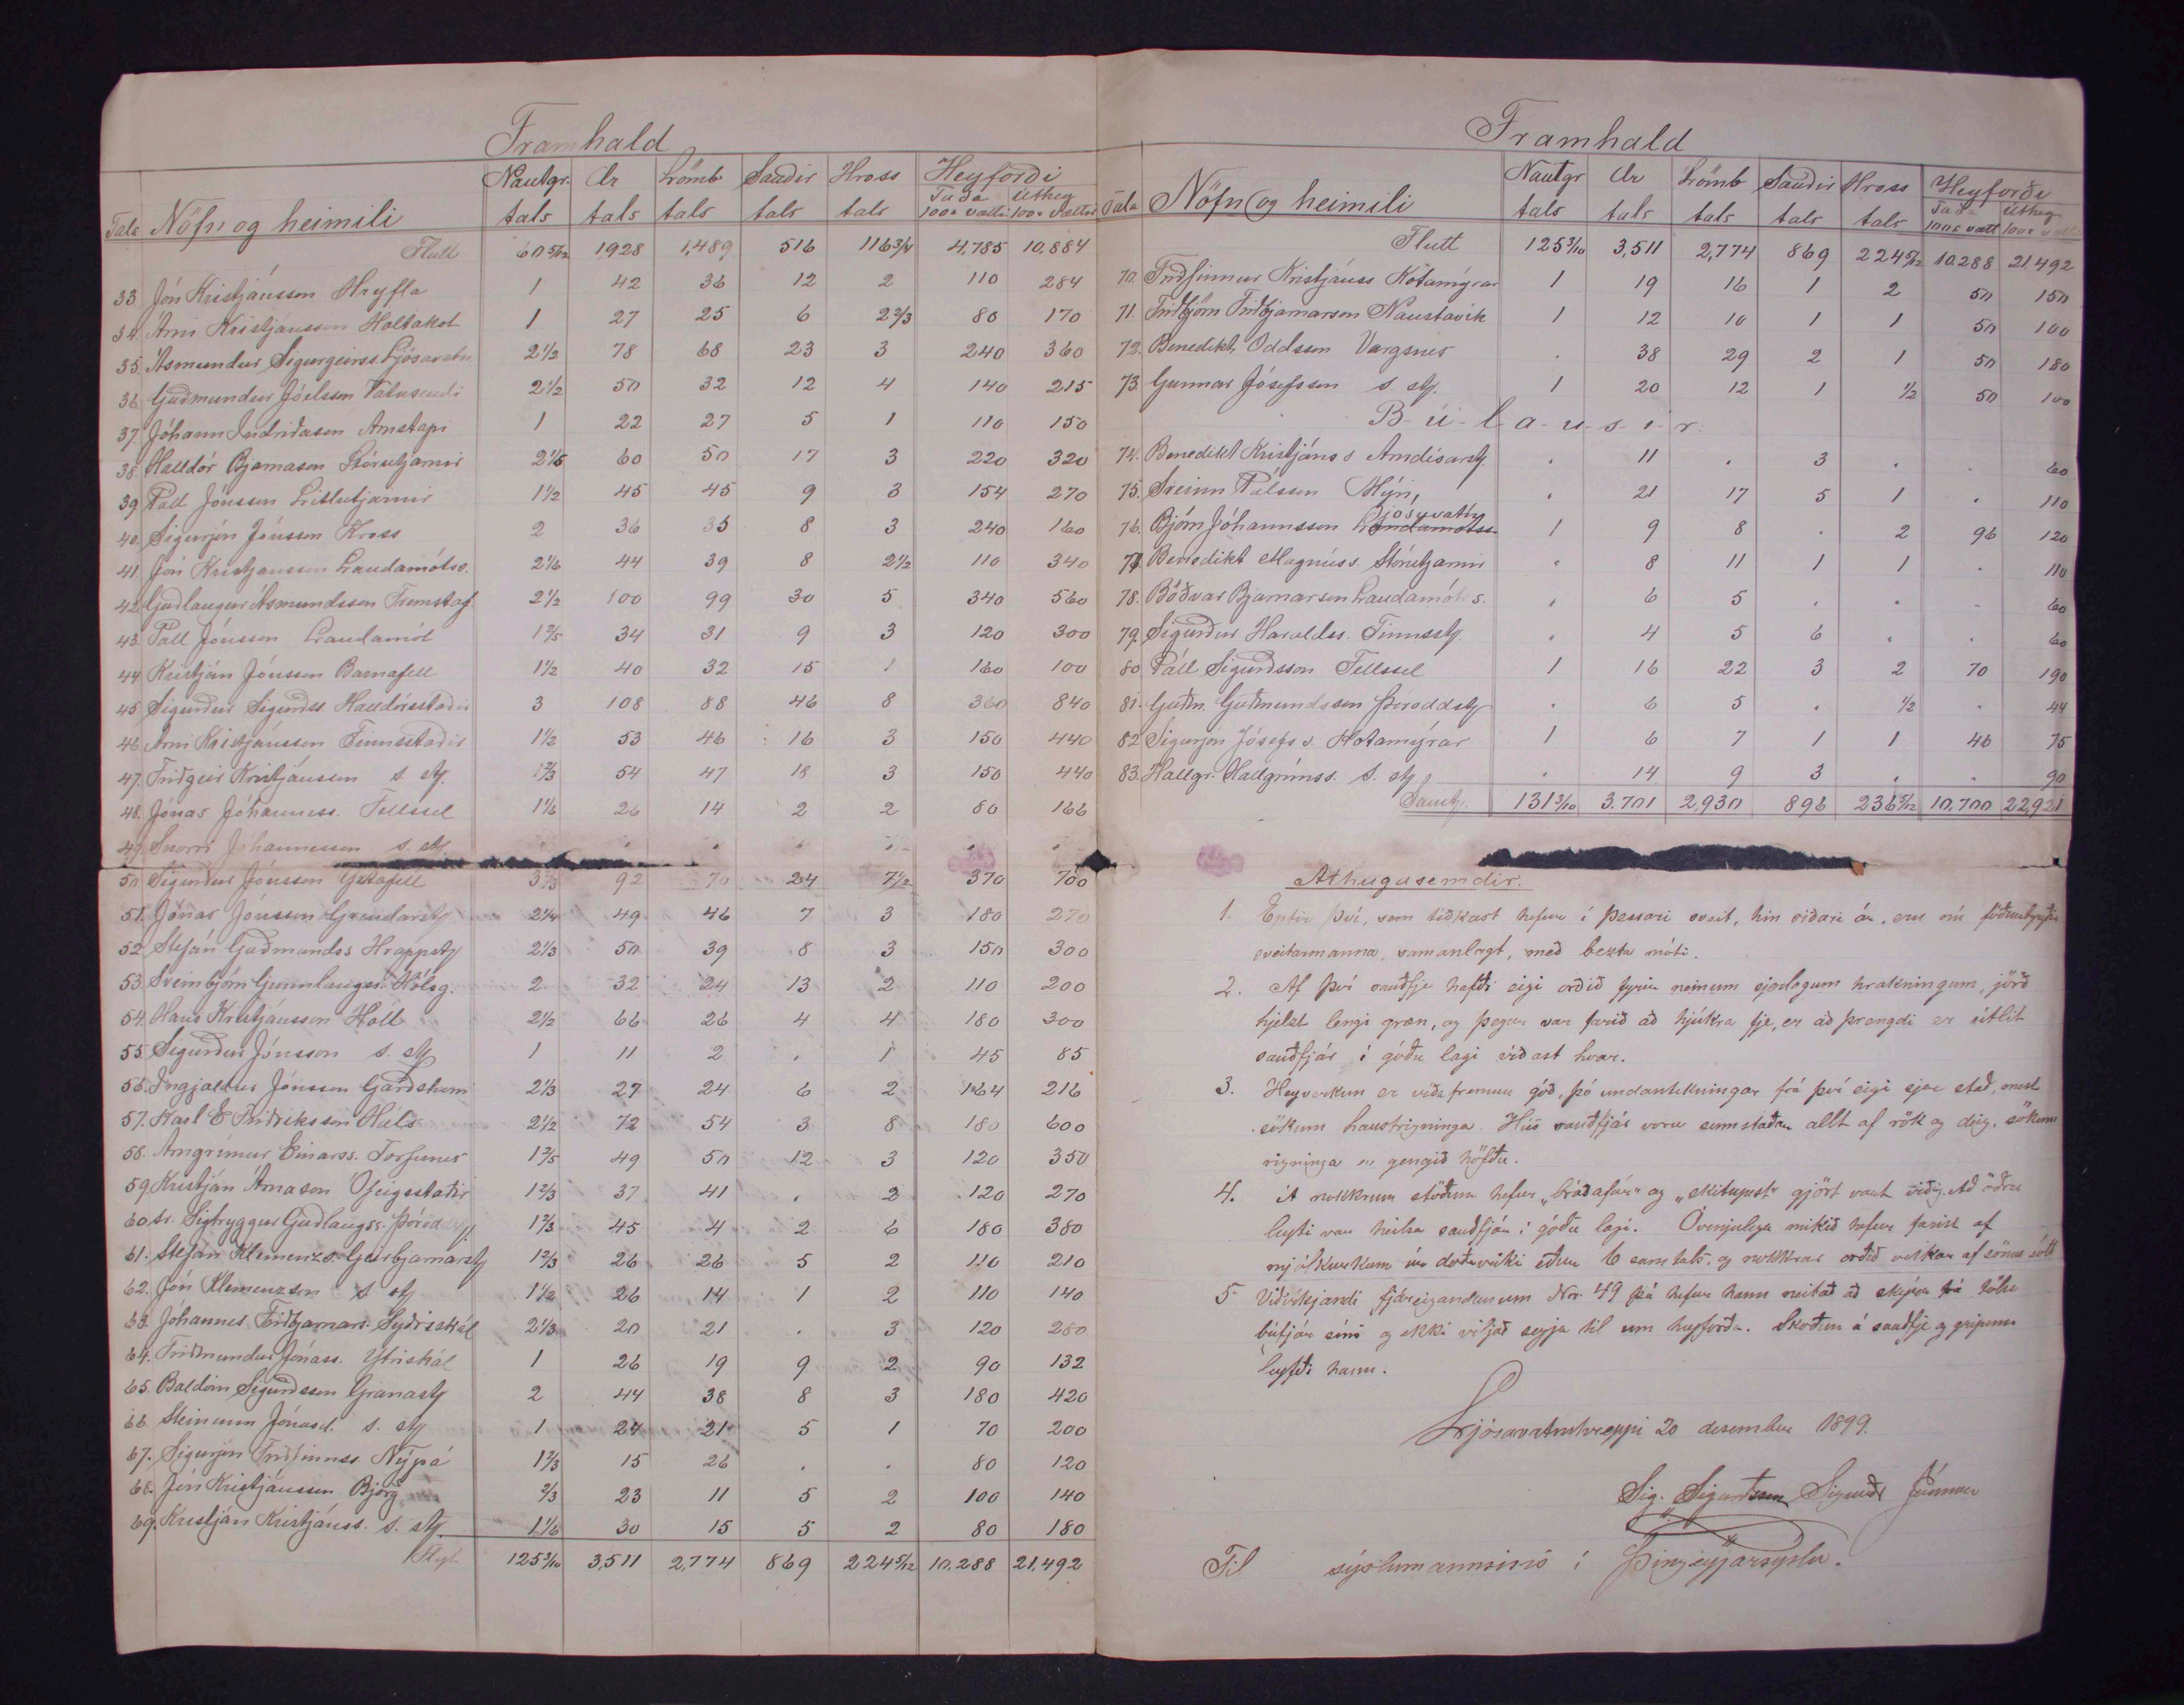 Framhald
Tals Nöfn og heimili Nautgr. tals Ær tals Lömb tals Sauðir tals Hross tals Heyforði Taða 100a vætti Úthey 100a vættir
Flutt 60 5/12 1928 1,489 516 116 3/4 4,785 10,884
33 Jón Kristjánsson Hryfla 1 42 36 12 2 110 284
34. Árni Kristjánsson Holtakot 1 27 25 6 2 2/3 80 170
35. Ásmundur Sigurgeirss. Ljósavatn 2 1/2 78 68 23 3 240 360
36 Guðmundur Jóelsson Vatnsendi 2 1/2 50 32 12 4 140 215
37. Jóhann Indriðason Arnstapi 1 22 27 5 1 110 150
38. Halldór Bjarnason Stórutjarnir 2 1/5 60 50 17 3 220 320
39 Páll Jónsson Litlutjarnir 1 1/2 45 45 9 3 154 270
40. Sigurjón Jónsson Kross 2 36 35 8 3 240 160
41 Jón Kristjánsson Landamótss. 2 1/6 44 39 8 2 1/2 110 340
42. Guðlaugur Ásmundsson Fremstaf. 2 1/2 100 99 30 5 340 560
43. Páll Jónsson Landamót 1 2/5 34 31 9 3 120 300
44. Kristján Jónsson Barnafell 1 1/2 40 32 15 1 160 100
45 Sigurður Sigurðss Halldórsstaðir 3 108 88 46 8 360 840
46. Árni Kristjánsson Finnsstaðir 1 1/2 53 46 16 3 150 440
47. Friðgeir Kristjánsson s. st. 1 2/3 54 47 18 3 150 440
48. Jónas Jóhanness. Fellssel 1 1/6 26 14 2 2 80 166
49. Snorri Jóhannesson s. st. . . . . . . .
50. Sigurður Jónsson Ystafell 92 70 24 7 1/2 370 700
51. Jónas Jónsson Grundarst 2 1/4 49 46 7 3 180 270
52 Stefán Guðmundss Hrappst 2 1/3 50 39 8 3 150 300
53. Sveinbjörn Gunnlaugss. Hólsg. 2 32 24 13 2 110 200
54. Hans Kristjánsson Holl 2 1/2 66 26 4 4 180 300
55. Sigurður Jónsson s. st 1 11 2 . 1 45 85
56. Ingjaldur Jónsson Garðshorn 2 1/3 27 24 6 2 164 216
57. Karl E Friðriksson Háls 2 1/2 72 54 3 8 180 600
58. Arngrímur Einarss. Torfunes 1 2/5 49 50 12 3 120 350
59. Kristján Árnason Ófeigsstaðir 1 2/3 37 41 . 2 120 270
60. sr. Sigtryggur Guðlaugss. Þórodd 1 2/3 45 4 2 6 180 380
61. Stefán Klemenzs. Geirbjarnarst 1 2/3 26 26 5 2 110 210
62. Jón Klemenzson s st 1 1/2 26 14 1 2 110 140
63. Jóhannes Friðbjarnars. Syðriskál 2 1/3 20 21 . 3 120 280
64. Friðmundur Jónass. Ytriskál 1 26 19 9 2 90 132
65. Baldvin Sigurðsson Granast 2 44 38 8 3 180 420
66. Steinunn Jónasd. s. st 1 24 21 5 1 70 200
67. Sigurjón Friðfinnss Nýpá 1 2/3 15 26 . . 80 120
68. Jón Kristjánsson Björg 2/3 23 11 5 2 100 140
69. Kristján Kristjánss. s. st. 1 1/6 30 15 5 2 80 180
Flyt 125 3/10 3,511 2,774 869 224 5/12 10,288 21,492
Framhald
Tala Nöfn og heimili Nautgr tals Ær tals Lömb tals Sauðir tals Hross tals Heyforði Taða 100a vætt Úthey 100a vætt
Flutt 125 3/10 3,511 2,774 869 224 5/12 10288 21,492
70. Friðfinnur Kristjánss Kotamýrar 1 19 16 1 2 50 150
71. Friðbjörn Friðbjarnarson Naustavík 1 12 10 1 1 50 100
72. Benedikt Oddsson Vargsnes . 38 29 2 1 50 180
73. Gunnar Jósefsson s st. 1 20 12 1 1/2 50 100
B-ú-l-a-u-s-i-r.
74. Benedikt Kristjánss Arndísarst . 11 . 3 . . 60
75. Sveinn Pálsson Hýri, . 21 17 5 1 . 110
76. Björn Jóhannsson Landamótss. Ljósavatn 1 9 8 . 2 96 120
77. Benedikt Magnúss. Stórutjarnir . 8 11 1 1 . 110
78. Böðvar Bjarnarson Landamóts s. . 6 5 . . . 60
79. Sigurður Haraldss. Finnsst . 4 5 6 . . 60
80 Páll Sigurðsson Fellssel 1 16 22 3 2 70 190
81. Guðm. Guðmundsson Þóroddst . 6 5 . 1/2 . 44
82 Sigurjón Jósefss. Kotamýrar 1 6 7 1 1 46 75
83. Hallgr. Hallgrímss. s. st . 14 9 3 . . 90
Samt. 131 3/10 3.701 2,930 896 236 5/12 10,700 22,921
Athugasemdir.
1. Eptir því, sem tíðkast hefur í þessari sveit, hin síðari ár, eru nú fóðurbyrgðir
sveitarmanna, samanlagt, með bezta móti.
2. Af því sauðfje hafði eigi orðið fyrir neinum sjerlegum hrakningum, jörð
hjelzt lengi græn, og þegar var farið að hjúkra fje, er að þrengdi er útlit
sauðfjár í góðu lagi víðast hvar.
3. Heyverkun er víða fremur góð, þó undantekningar frá því eigi sjer stað, mest
sökum haustrigninga. Hús sauðfjár voru sumstaðar allt af rök og deig, sökum
rigninga er gengið höfðu.
4. Á nokkrum stöðum hefur „bráðafár" og „skitupest" gjört vart við sig. Að öðru
leyti var heilsa sauðfjár í góðu lagi. Óvenjulega mikið hefur farist af
mjólkurkúm úr doðaveiki eður 6 sam tals, og nokkrar orðið veikar af sömu sótt
5 Viðvíkjandi fjáreigandanum Nr. 49 þá hefur hann neitað að skýra frá tölu
búfjár síns og ekki viljað segja til um heyforða. Skoðun á sauðfje og gripum
leyfði hann.
Ljósavatnshreppi 20 desember 1899.
Sig. Sigurðsson Sigurður Jónsson
Til sýslumannsins í Þingeyjarsýslu.